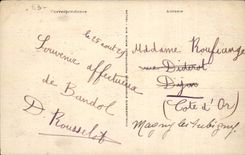 Correspondance
Adresse
le 25 aout 29
Souvenir affectueux
de Bandol
D. Rousselot
Madame Roufiange
rue Diderot
Dijon
(Côte d'Or)
Magny les Aubigny